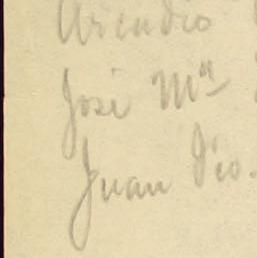 Arcadio
José Mª
Juan Dio.